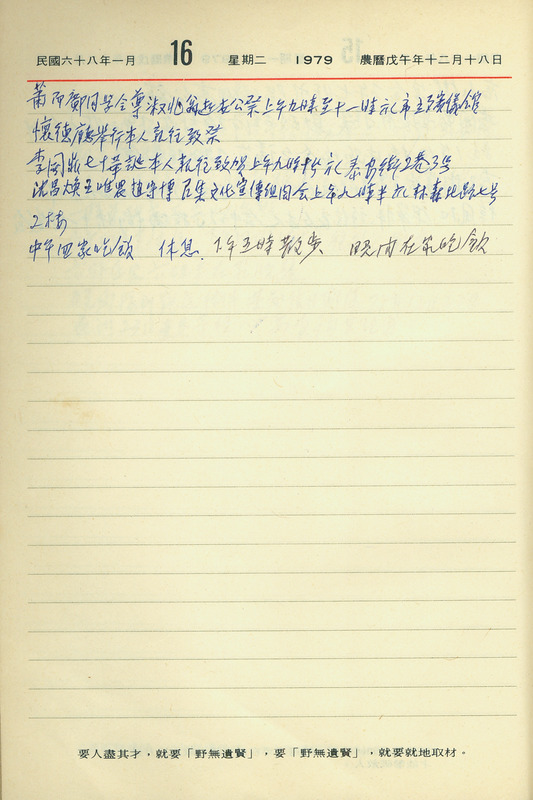 民國六十八年一月 16 星期二 1979 農曆戊午年十二月十八日
蕭 鄭同學令尊淑 公祭上午九時至十一時 市立殯儀館
懷德廳舉行本人前往致祭
李國鼎七十華誕本人前往致賀上午九時半 泰安街2巷3号
沈昌煥王唯農趙守博召集文化宣傳組同会上午九時半 林森北路七号
2楼
中午回家吃飯 休息 下午五時散步 晚间在家吃飯
要人盡其才，就要「野無遺賢」，要「野無遺賢」，就要就地取材。